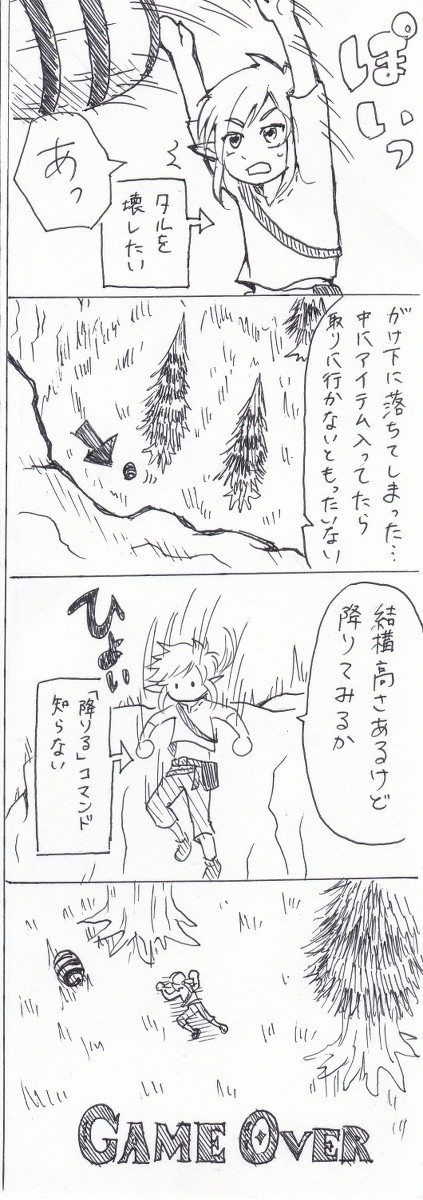 ぽいっ
あっ
タルを
壊したい
がけ下に落ちてしまった…
中にアイテム入ってたら
取りに行かないともったいない
結構高さあるけど
降りてみるか
ひょい
「降りる」コマンド
知らない
GAME OVER